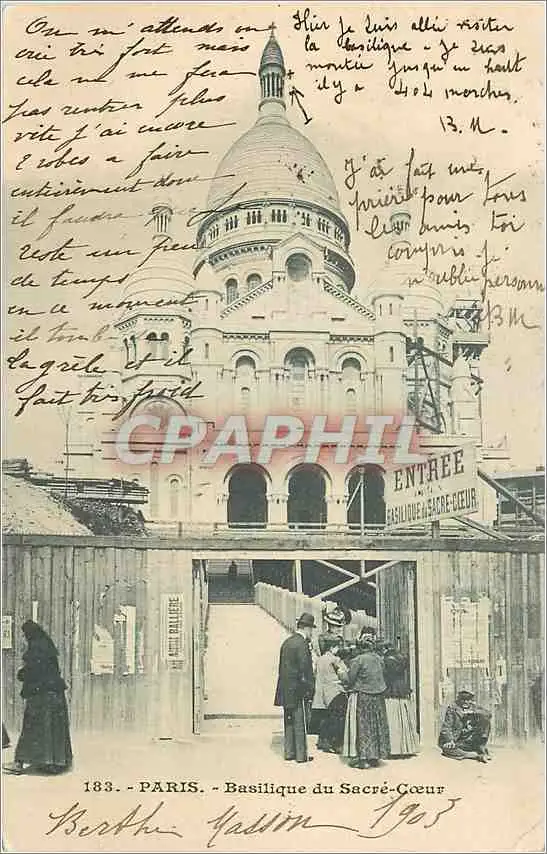 On m'attends on
crie très fort mais
cela ne me fera
pas rentrer plus
vite j'ai encore
2 robes a faire
entièrement donc
il faudra
reste un peu
de temps
en ce moment
il tombe
la grêle et il
fait très froid
Hier je suis allée visiter
la basilique je suis
montée jusqu'en haut
il y a 404 marches.
B. M.
J'ai fait mes
prières pour tous
les amis toi
compris je
n'oublie personne
B M
CPARAPHIL
ENTRÉE
BASILIQUE du SACRÉ-CŒUR
183. - PARIS. - Basilique du Sacré-Cœur
Berthe Masson 1903